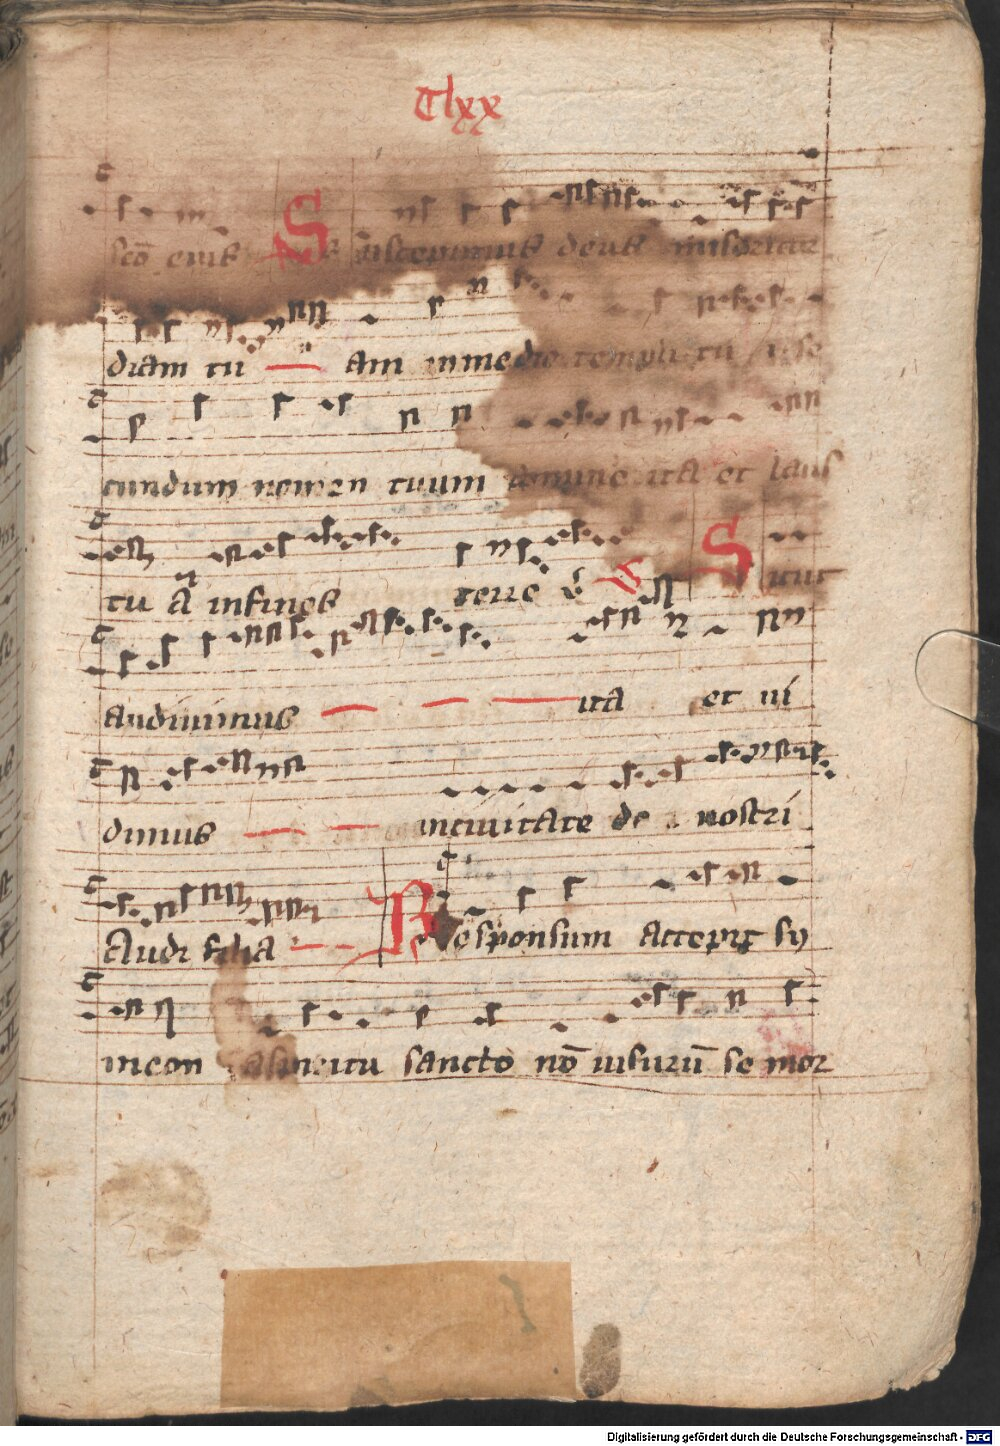 Clxx
sco eius S Suscepimus deus misericor
diam tu am in medio templi tu i se
cundum nomen tuum domine ita et laus
tua in fines terre V S Sicut
audiuimus ita et ui
dimus in ciuitate de i nostri
Audi filia Responsum accepit sy
meon a spiritu sancto nō uisurū se mor
Digitalisierung gefördert durch die Deutsche Forschungsgemeinschaft - DFG